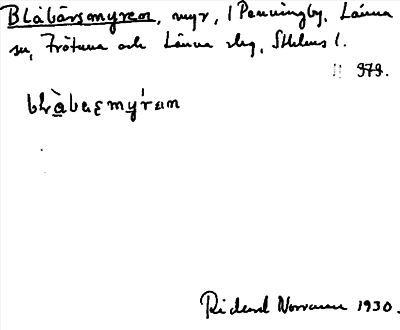 Blåbärsmyren, myr, i Penningby, Länna
sn, Frötuna och Länna skg, Sthlms l.
979.
Rickard Norrman 1930.